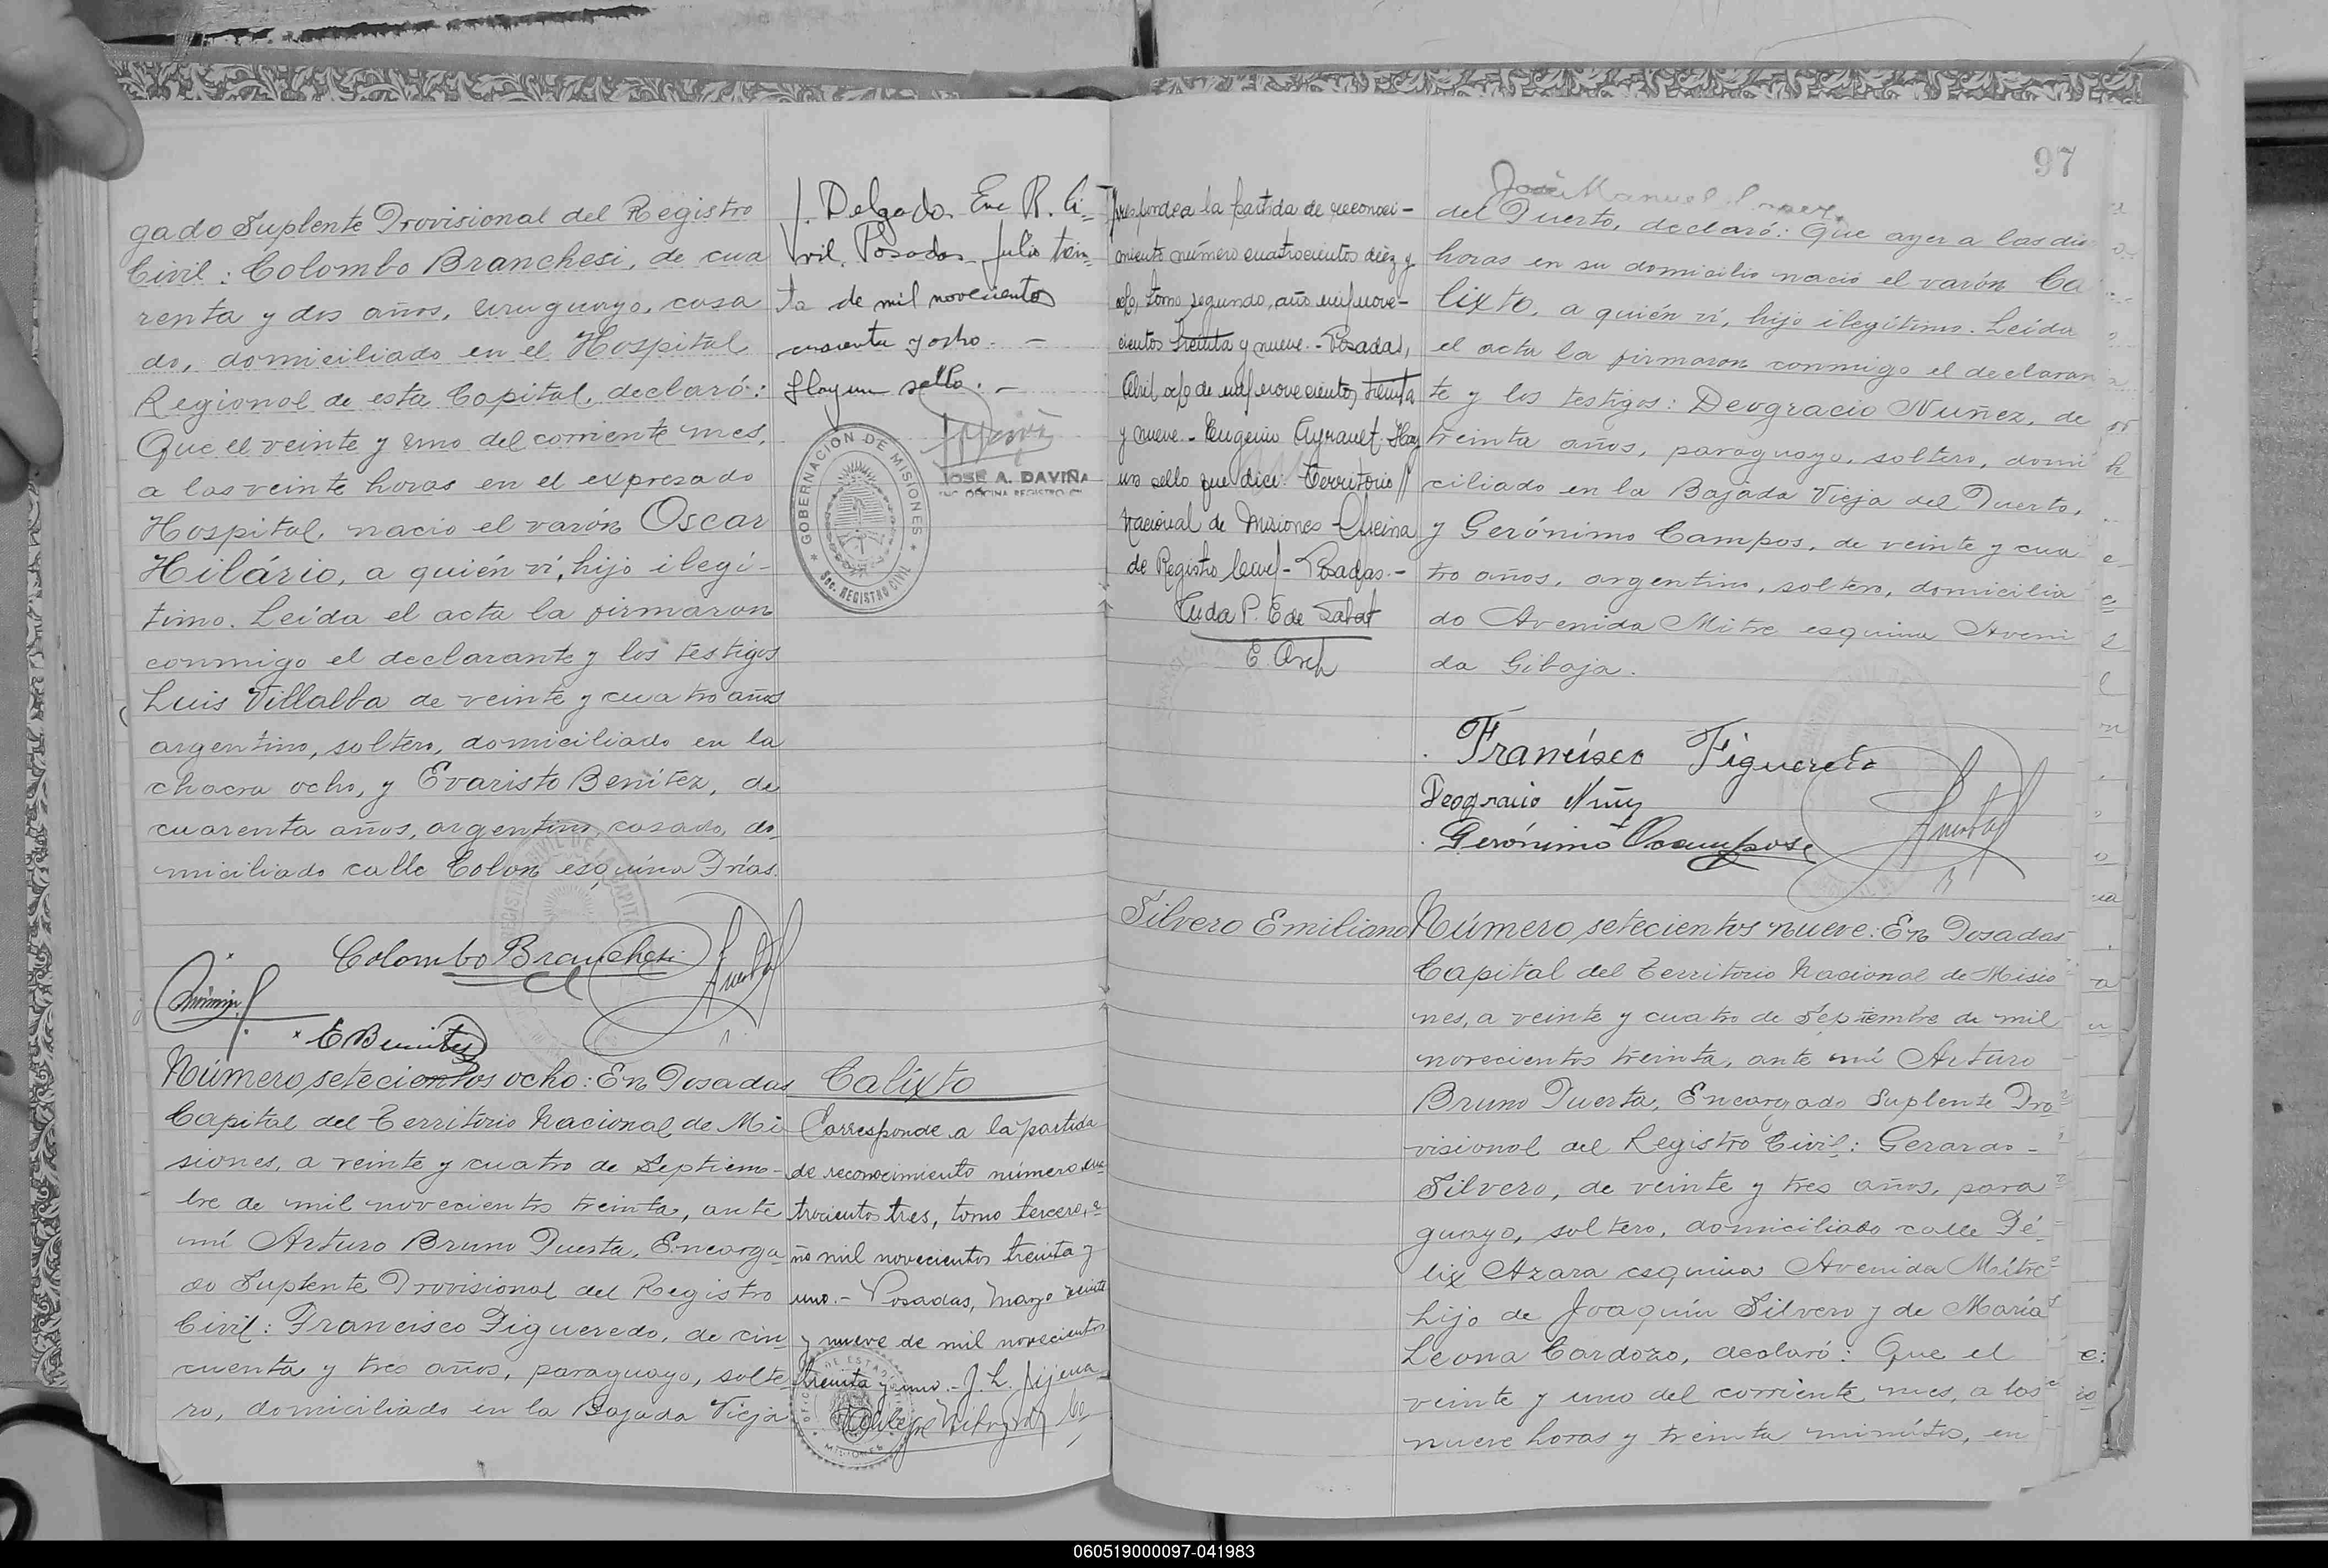 gado Suplente Provisional del Registro
Civil: Colombo Branchesi, de cua
renta y dos años, uruguayo, casa
do, domiciliado en el Hospital
Regional de esta Capital, declaró:
Que el veinte y uno del corriente mes,
a las veinte horas en el expresado
Hospital, nacio el varón Oscar
Hilário, a quién ví, hijo ilegí-
timo. Leída el acta la firmaron
conmigo el declarante y los testigos
Luis Villalba de veinte y cuatro años
argentino, soltero, domiciliado en la
chacra ocho, y Evaristo Benitez, de
cuarenta años, argentino, casado, do
miciliado calle Colon esquina Frías.
Colombo Branchesi
E Benitez
Número setecientos ocho: En Posadas
Capital del Territorio Nacional de Mi
siones, a veinte y cuatro de Septiem-
bre de mil novecientos treinta, ante
mí Arturo Bruno Puerta, Encarga
do Suplente Provisional del Registro
Civil: Francisco Figueredo, de cin
cuenta y tres años, paraguayo, solte
ro, domiciliado en la Bajada Vieja
J. Delgado Enc R. Ci-
vil. Posadas Julio trein-
ta de mil novecientos
cuarenta y ocho. -
Hay un sello. -
GOBERNACION DE MISIONES
Sec. REGISTRO CIVIL
JOSE A. DAVIÑA
OFICINA REGISTRO
Calixto
Corresponde a la partida
de reconocimiento número cua-
trocientos tres, tomo tercero, a-
ño mil novecientos treinta y
uno.- Posadas, Marzo veinte
y nueve de mil novecientos
treinta y uno.- J. L.
MISIONES
presponde a la partida de reconoci-
miento número cuatrocientos diez y
ocho, tomo segundo, año mil nove-
cientos treinta y nueve.- Posadas,
Abril ocho de mil novecientos treinta
y nueve.- Eugenio Ayrault. Hay
un sello que dice: Territorio
Nacional de Misiones - Oficina
de Registro Civil - Posadas.-
E. Arch
97
José Manuel Lopez
del Puerto, declaró: Que ayer a las die
horas en su domicilio nació el varón Ca
lixto, a quién ví, hijo ilegítimo. Leída
el acta la firmaron conmigo el declaran
te y los testigos: Deogracio Nuñez, de
treinta años, paraguayo, soltero, domi
ciliado en la Bajada Vieja del Puerto,
y Gerónimo Campos, de veinte y cua
tro años, argentino, soltero, domicilia
do Avenida Mitre esquina Aveni
da Gibaja.
Francisco Figueredo
Deogracio Nuñz
Gerónimo Ocampose
Silvero Emiliano
Número setecientos nueve: En Posadas
Capital del Territorio Nacional de Misio
nes, a veinte y cuatro de Septiembre de mil
novecientos treinta, ante mí Arturo
Bruno Puerta, Encargado Suplente Pro
visional del Registro Civil: Gerardo -
Silvero, de veinte y tres años, para
guayo, soltero, domiciliado calle Fé-
lix Azara esquina Avenida Mitre
hijo de Joaquín Silvero y de María
Leona Cardozo, declaró: Que el
veinte y uno del corriente mes, a las
nueve horas y treinta minútos, en
060519000097-041983